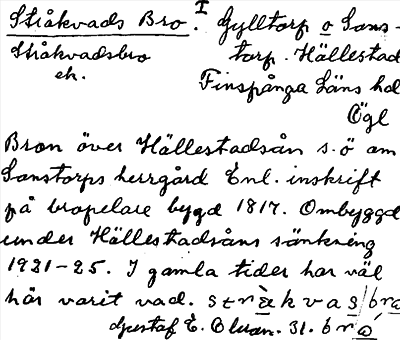 Stråkvads Bro. I Gylltorp o Sans-
Stråkvadsbro torp. Hällestad
ek. Finspånga Läns hd
Ögl
Bron över Hällestadsån s.ö om
Sanstorps herrgård Enl. inskrift
på bropelare byggd 1817. Ombyggd
under Hällestadsåns sänkning
1921-25. I gamla tider har väl
här varit vad. strå̀kvas/bro
Gustaf E. Olsson. 31. bró